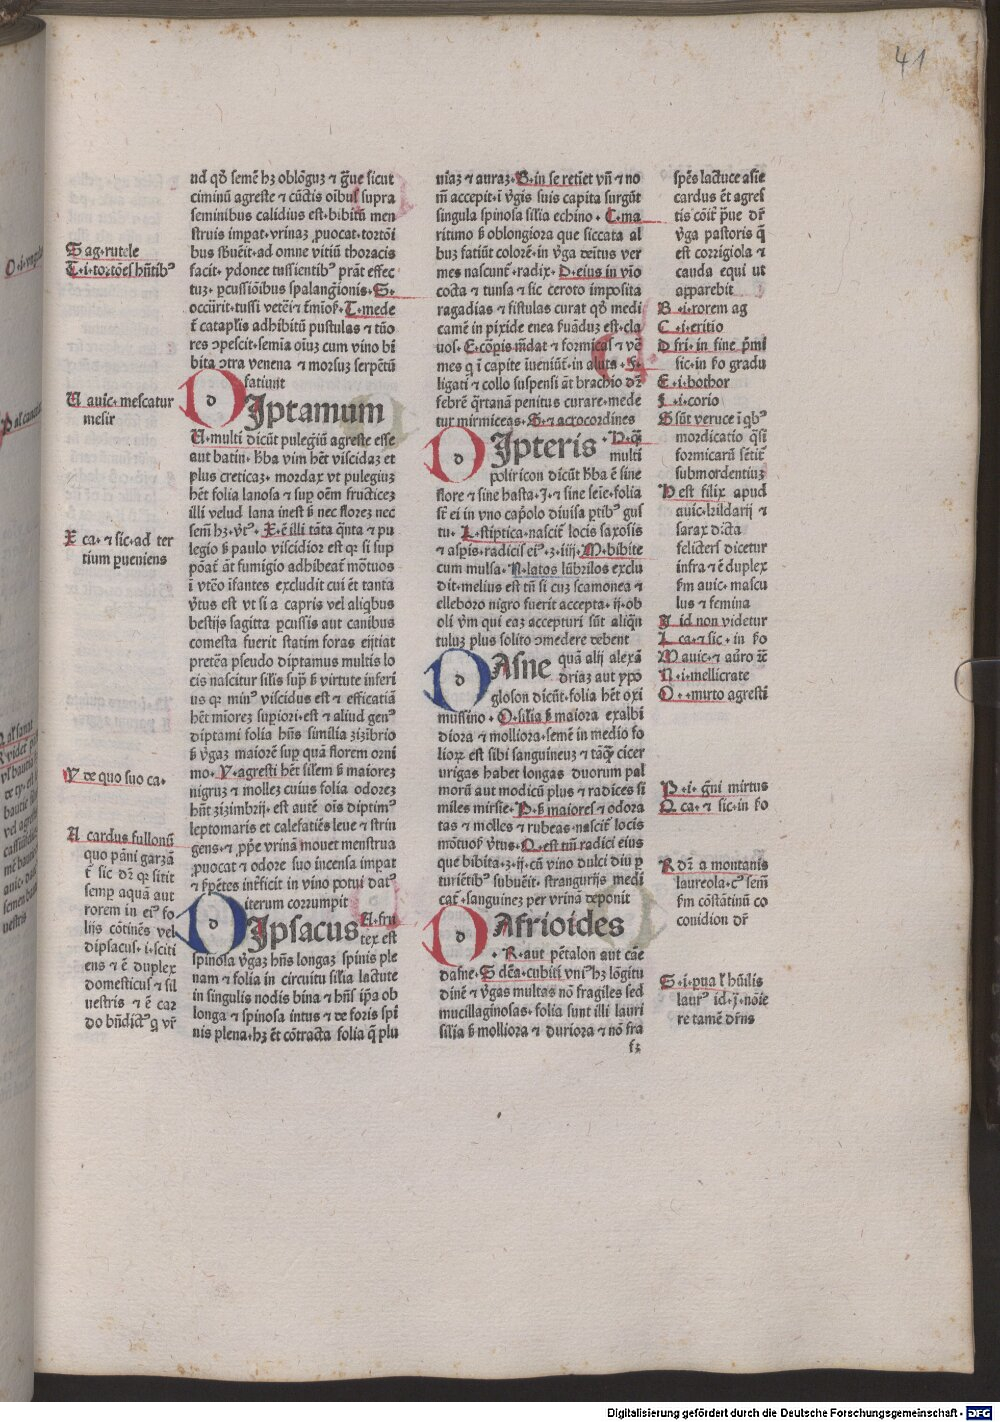 41
ud qḋ semē hꝫ oblōguꝫ ⁊ g̃ue sicut
ciminū agreste ⁊ cūctis oibus supra
seminibus calidius est·bibitū men
struis impat·vrinaꝫ ꝓuocat·tortōi
bus sbuēit·ad omne vitiū thoracis
facit·ydonee tussientibꝰ prāt effec
tuꝫ·pcussiōibus spalangionis·S·
occūrit·tussi
T·mede
t̄ cataplīs adhibitū pustulas ⁊ tūo
res ↄpescit·semīa oīuꝫ cum vino bi
bita ↄtra venena ⁊ morsuꝫ serpētū
fatiunt
d Iptamum
V·multi dicūt pulegiū agreste esse
aut batin·hba vim hēt viscidaꝫ et
plus creticaꝫ·mordax vt pulegiuꝫ
hēt folia lanosa ⁊ sup oēm fructiceꝫ
illi velud lana inest ƀ nec floreꝫ nec
semē hꝫ·vtꝰ·X·ē illi tāta q̄nta ⁊ pu
legio ƀ paulo viscidioꝫ est qꝫ si sup
pōat̄ āt fumigio adhibeat̄ mōtuos
ī vtēo īfantes excludit cui ēt tanta
v̄tus est vt si a capris vel aliqbus
bestijs sagitta pcussis aut canibus
comesta fuerit statim foras eijtiat
pretēa pseudo diptamus multis lo
cis nascitur silis sup̄ ƀ virtute inferi
us qꝫ minꝰ viscidus est ⁊ efficatiā
hēt miorez supiori·est ⁊ aliud genꝰ
diptami folia hn̄s similia ziziƀrio
ƀ v̄gaꝫ maiorē sup quā florem orni
mo·Y·agresti hēt silem ƀ maioreꝫ
nigruꝫ ⁊ molleꝫ cuius folia odoreꝫ
hn̄t zizimbrij·est autē oīs diptimꝰ
leptomaris et calefatiēs leue ⁊ strin
gens·⁊ ꝓpe vrinā mouet menstrua
ꝓuocat ⁊ odore suo incensa impat
⁊ ƀpētes inēficit in vino potui datꝰ
iterum corrumpit
d Ipsacus A·fru
tex est
spinosa v̄gaꝫ hn̄s longaꝫ spinis ple
nam ⁊ folia in circuitu silia lactute
in singulis nodis bina ⁊ hn̄s ip̄a ob
longa ⁊ spinosa intus ⁊ de foris spī
nis plena·hꝫ ēt cōtracta folia q̄ plu
niaꝫ ⁊ auraꝫ·B·in se retiet vn̄ ⁊ no
m̄ accepit·ī v̄gis suis capita surgūt
singula spinosa silia echino·C·ma
ritimo ƀ oblongiora que siccata al
bus fatiūt colorē·in v̄ga deitus ver
mes nascunt̄·radix·D·eius in vīo
cocta ⁊ tunsa ⁊ sic ceroto imposita
ragadias ⁊ fistulas curat qḋ medi
camē in pixide enea fuāduꝫ est·cla
uos·E·cōpris m̄dat ⁊ formicas ⁊ vē
mes q ī capite iueniūt̄·in aluta·F·
ligati ⁊ collo suspensi āt brachio dr̄
febrē q̄rtanā penitus curare·mede
tur mirmiceas·G·⁊ acrocordines
d Ipteris ·H·q̄
multi
poliricon dicūt hba ē sine
flore ⁊ sine hasta·I·⁊ sine seīe·folia
sr̄ ei in vno capōlo diuisa ptibꝰ gus
tu·L·stiptica·nascit̄ locis saxosis
⁊ aspis·radicis eiꝰ·ʒ·iiij·M·bibite
cum mulsa·N·latos lūbrilos exclu
dit·melius est tn̄ si cuꝫ scamonea ⁊
elleboro nigro fuerit accepta·ij·ob
oli ym qui eaꝫ accepturi sūt aliqn̄
tuluꝫ plus solito ↄmedere debent
d Asne quā alij alexā
driaꝫ aut ypo
gloson dicūt·folia hēt oxi
mussino·O·silia ƀ maiora exalbi
diora ⁊ molliora·semē in medio fo
lioꝝ est sibi sanguineuꝫ ⁊ tāqꝫ cicer
urigas habet longas duorum pal
morū aut modicū plus ⁊ radices si
miles mirsie·P·ƀ maiores ⁊ odora
tas ⁊ molles ⁊ rubeas·nascit̄ locis
mōtuos v̄tus·Q·est tn̄ radici eius
que bibita·ʒ·ij·cū vino dulci diu p
turiētibꝰ subuēit·stranguriis medi
cat̄·sanguineꝫ per vrinā deponit
d Afrioides
·R·aut pētalon aut cāe
dafne·S·dēa·cubiti vniꝰ hꝫ lōgitu
dinē ⁊ v̄gas multas nō fragiles sed
mucillaginosas·folia sunt illi lauri
silia ƀ molliora ⁊ duriora ⁊ nō fra
fʒ
S ag·rutele
T·i·tortōes hn̄tibꝰ
V auic·mescatur
mesir
X ca·⁊ sic·ad ter
tium pueniens
Y de quo suo ca·
A cardus fullonū
quo pāni garzā
t̄ sic dr̄ qꝫ sitit
semp aquā aut
rorem in eiꝰ fo
lijs cōtinēs vel
dipsacus·i·sciti
ens ⁊ ē duplex
domesticus ⁊ sil
uestris ⁊ ē car
do bn̄dictꝰ q vr̄
spēs lactuce asīe
cardus ēt agres
tis cōit̄ p̄ue dr̄
v̄ga pastoris q̄
est corrigiola ⁊
cauda equi ut
apparebit
B·i·rorem ag
C·i·eritio
D fri·in fine p̄mi
sic·in ƀo gradu
E·i·bothor
F·i·corio
G sūt veruce ī qbꝰ
mordicatio q̄si
formicarū sētit̄
submordentiuꝫ
H est filix apud
auic·lzildarij ⁊
sarax dicta
felicters dicetur
infra ⁊ ē duplex
ƀm auic·mascu
lus ⁊ femina
I id non videtur
L ca·⁊ sic·in ƀo
M auic·⁊ aur̄o ⁊c̄
N·i·mellicrate
O·mirto agresti
P·i·g̃ni mirtus
Q ca·⁊ sic·in ƀo
R dr̄ a montanis
laureola·cꝰ sem̄
ƀm cōstātinū co
conidion dr̄
S·i·pua l̄ hūilis
laurꝰ id·I·nōie
re tamē dr̄ns
Digitalisierung gefördert durch die Deutsche Forschungsgemeinschaft - DFG